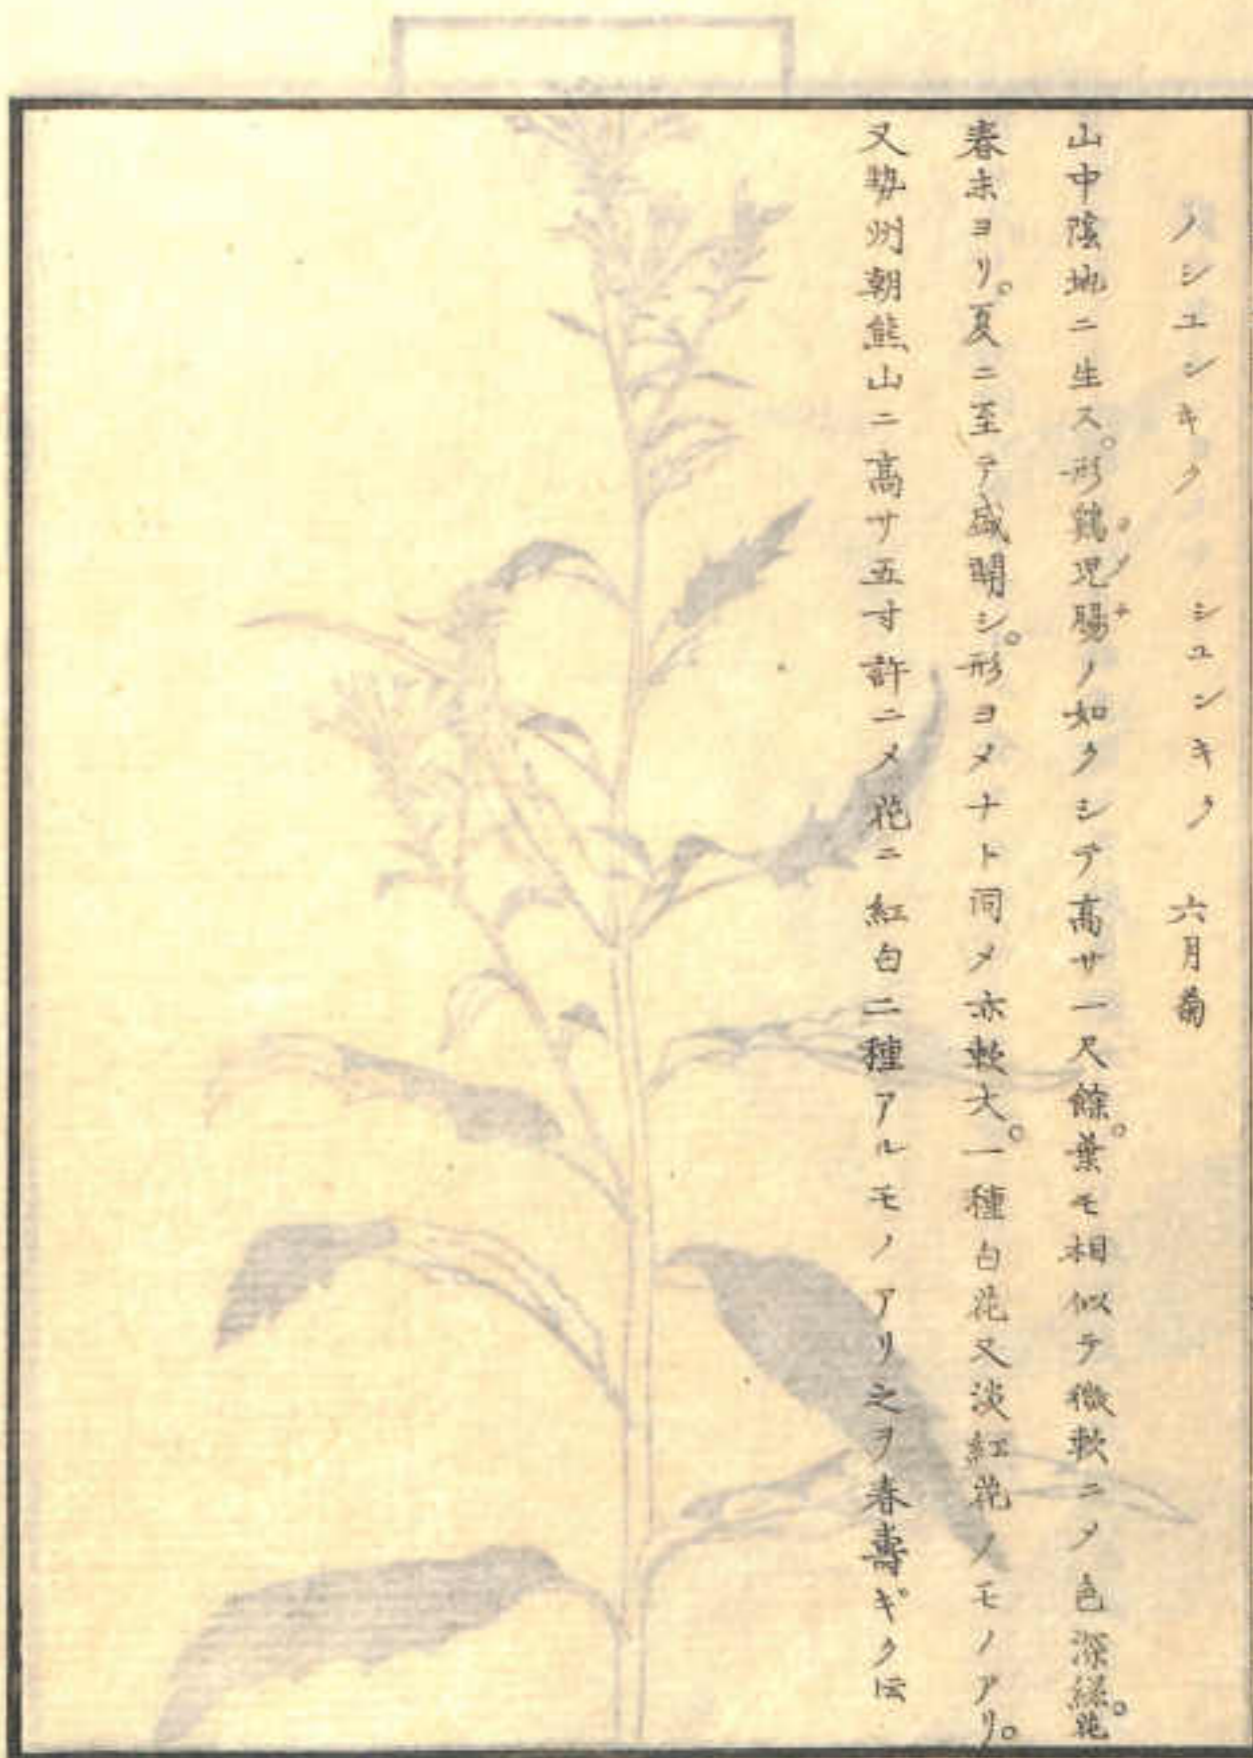 ノシユンキク　シユンキク　六月菊
山中陰地ニ生ス。形鶏児腸ノ如クシテ高サ一尺餘。葉モ相似テ微軟ニメ色深緑。花
春末ヨリ。夏ニ至テ盛開シ。形ヨメナト同メ亦軟大。一種白花又淡紅花ノモノアリ。
又勢州朝熊山ニ高サ五寸許ニメ花ニ紅白二種アルモノアリ之ヲ春壽ギク云